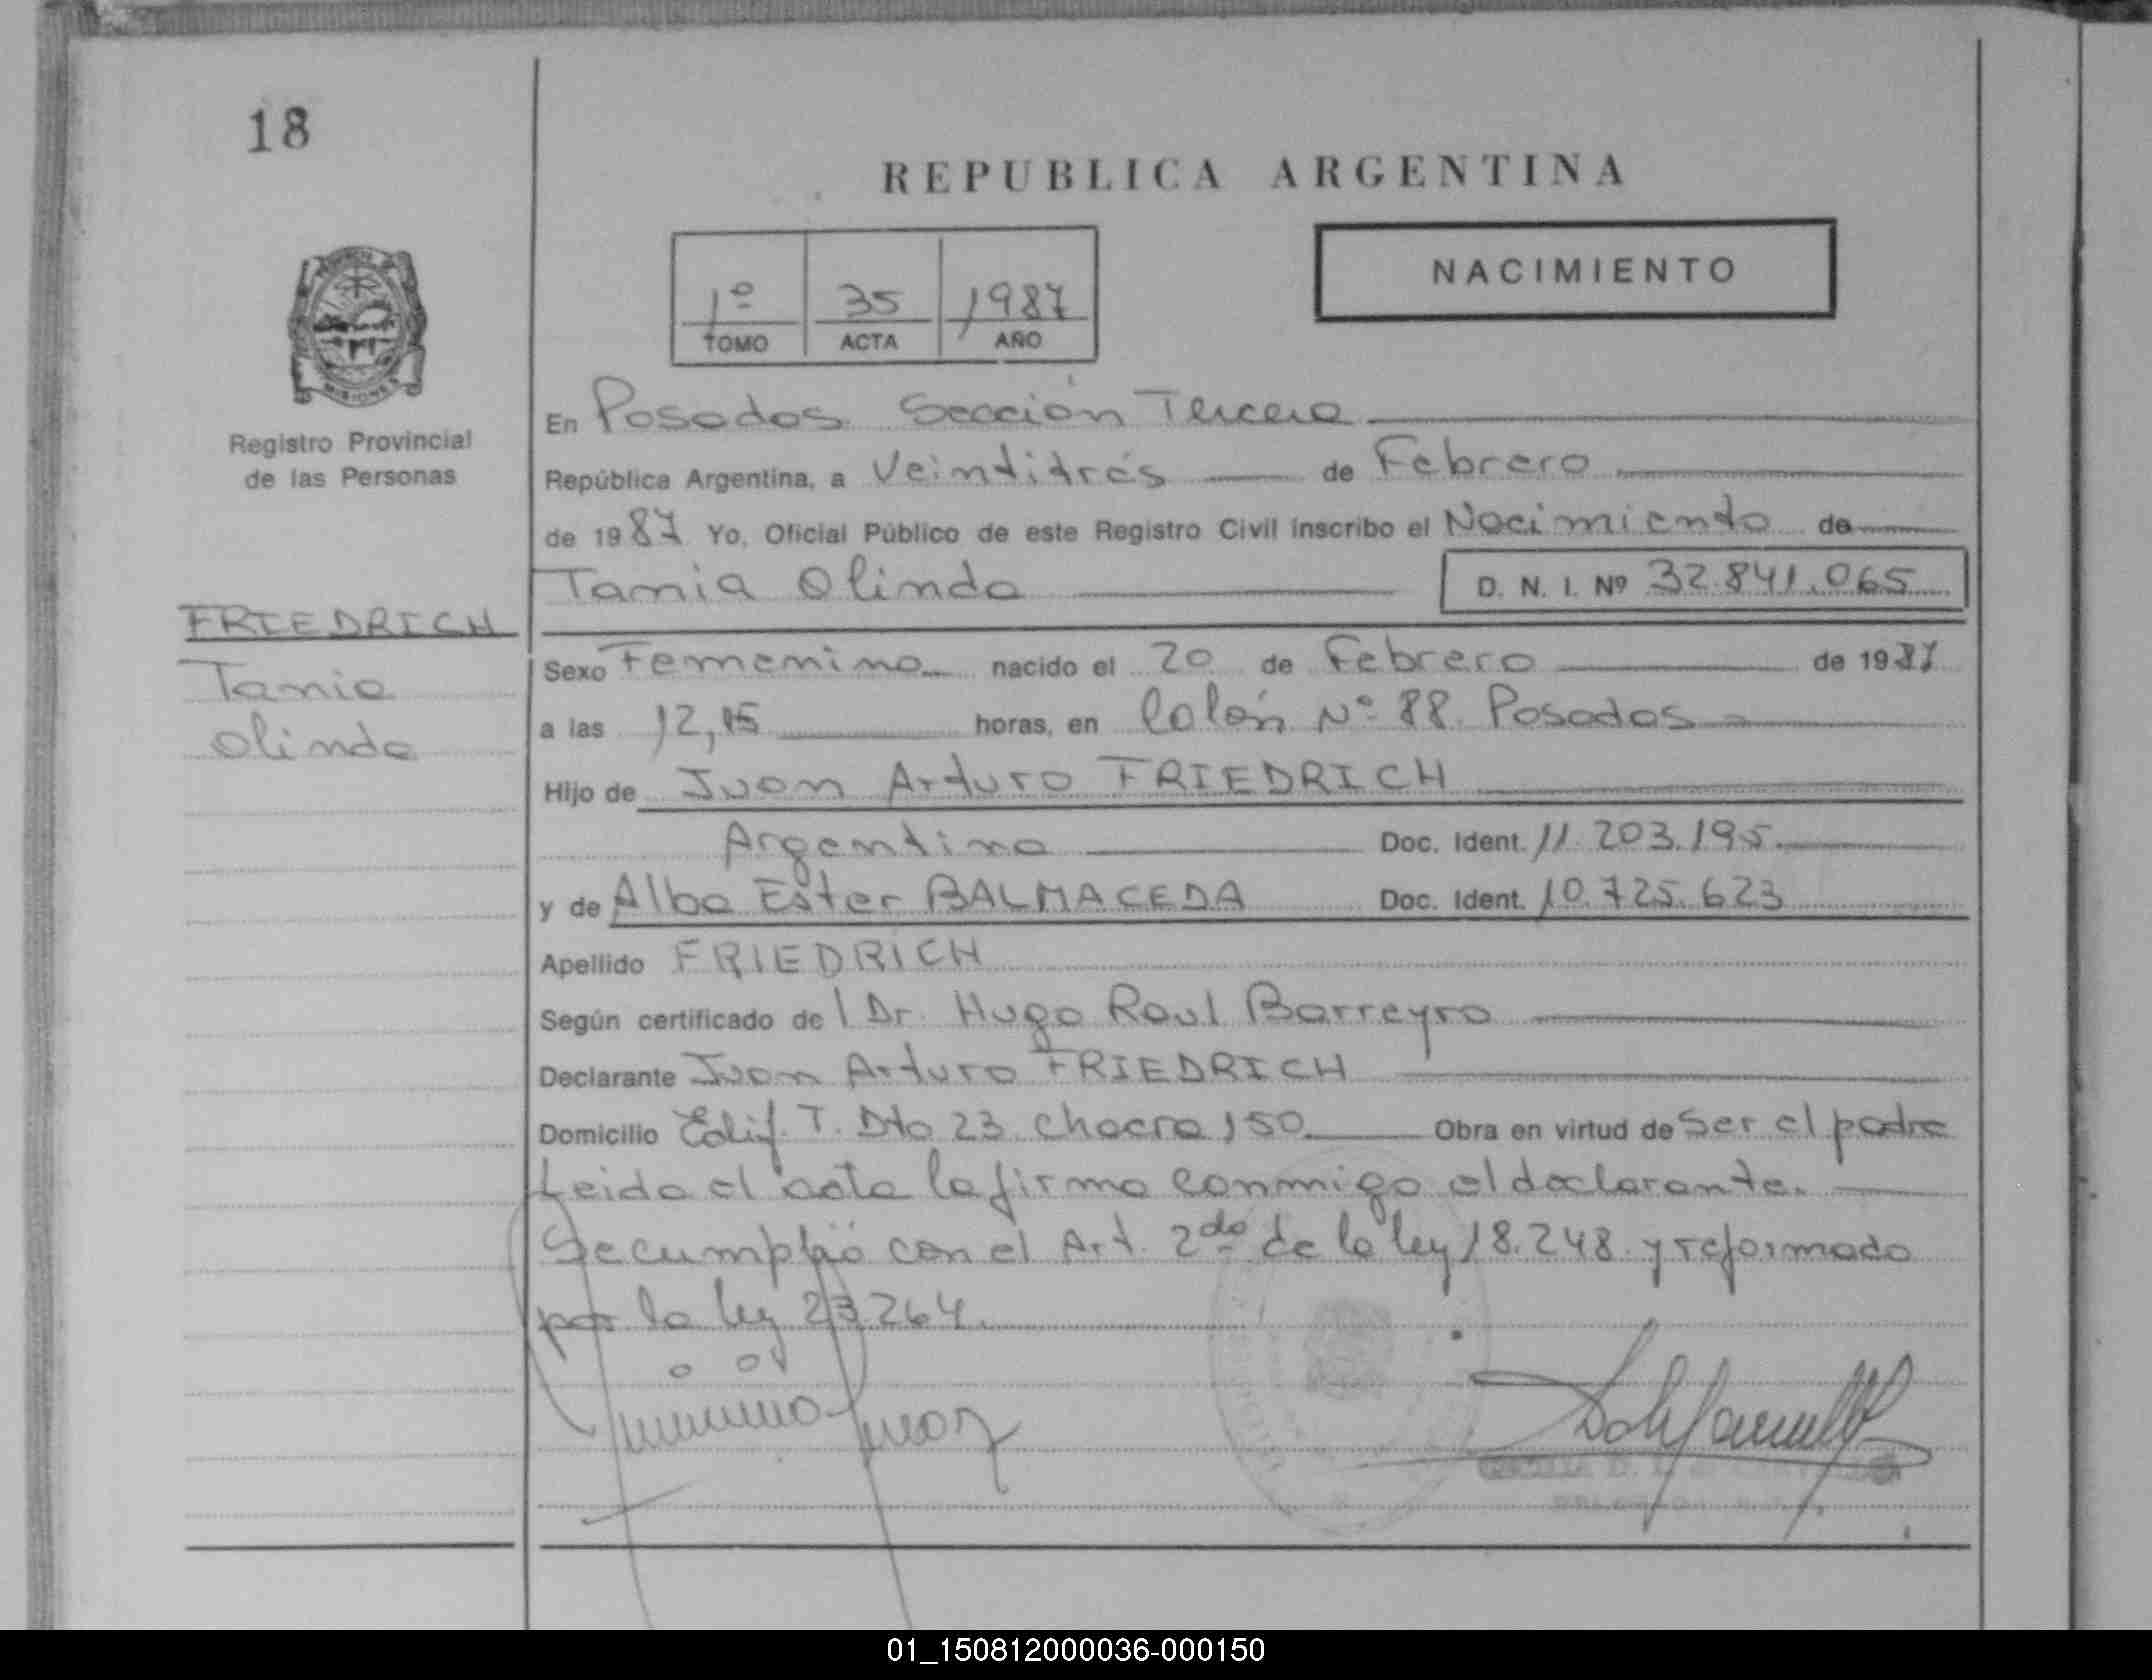 18
REPUBLICA ARGENTINA
NACIMIENTO
1º 35 1987
TOMO ACTA AÑO
MISIONES
Registro Provincial
de las Personas
En Posadas Sección Tercera
República Argentina, a Veintitrés de Febrero
de 1987 Yo, Oficial Público de este Registro Civil inscribo el Nacimiento de
Tania Olinda D. N. I. Nº 32.841.065
FRIEDRICH
Tania
Olinda
Sexo Femenino nacido el 20 de Febrero de 1987
a las 12,15 horas, en Colón Nº 88 Posadas
Hijo de Juan Arturo FRIEDRICH
Argentino Doc. Ident. 11.203.195
y de Alba Ester BALMACEDA Doc. Ident. 10.725.623
Apellido FRIEDRICH
Según certificado del Dr. Hugo Raul Barreyro
Declarante Juan Arturo FRIEDRICH
Domicilio Edif. T. Dto 23 chacra 150 Obra en virtud de Ser el padre
Leida el acta la firma conmigo el declarante.
Se cumplió con el Art. 2do de la ley 18.248 y reformado
por la ley 23264.
01_150812000036-000150